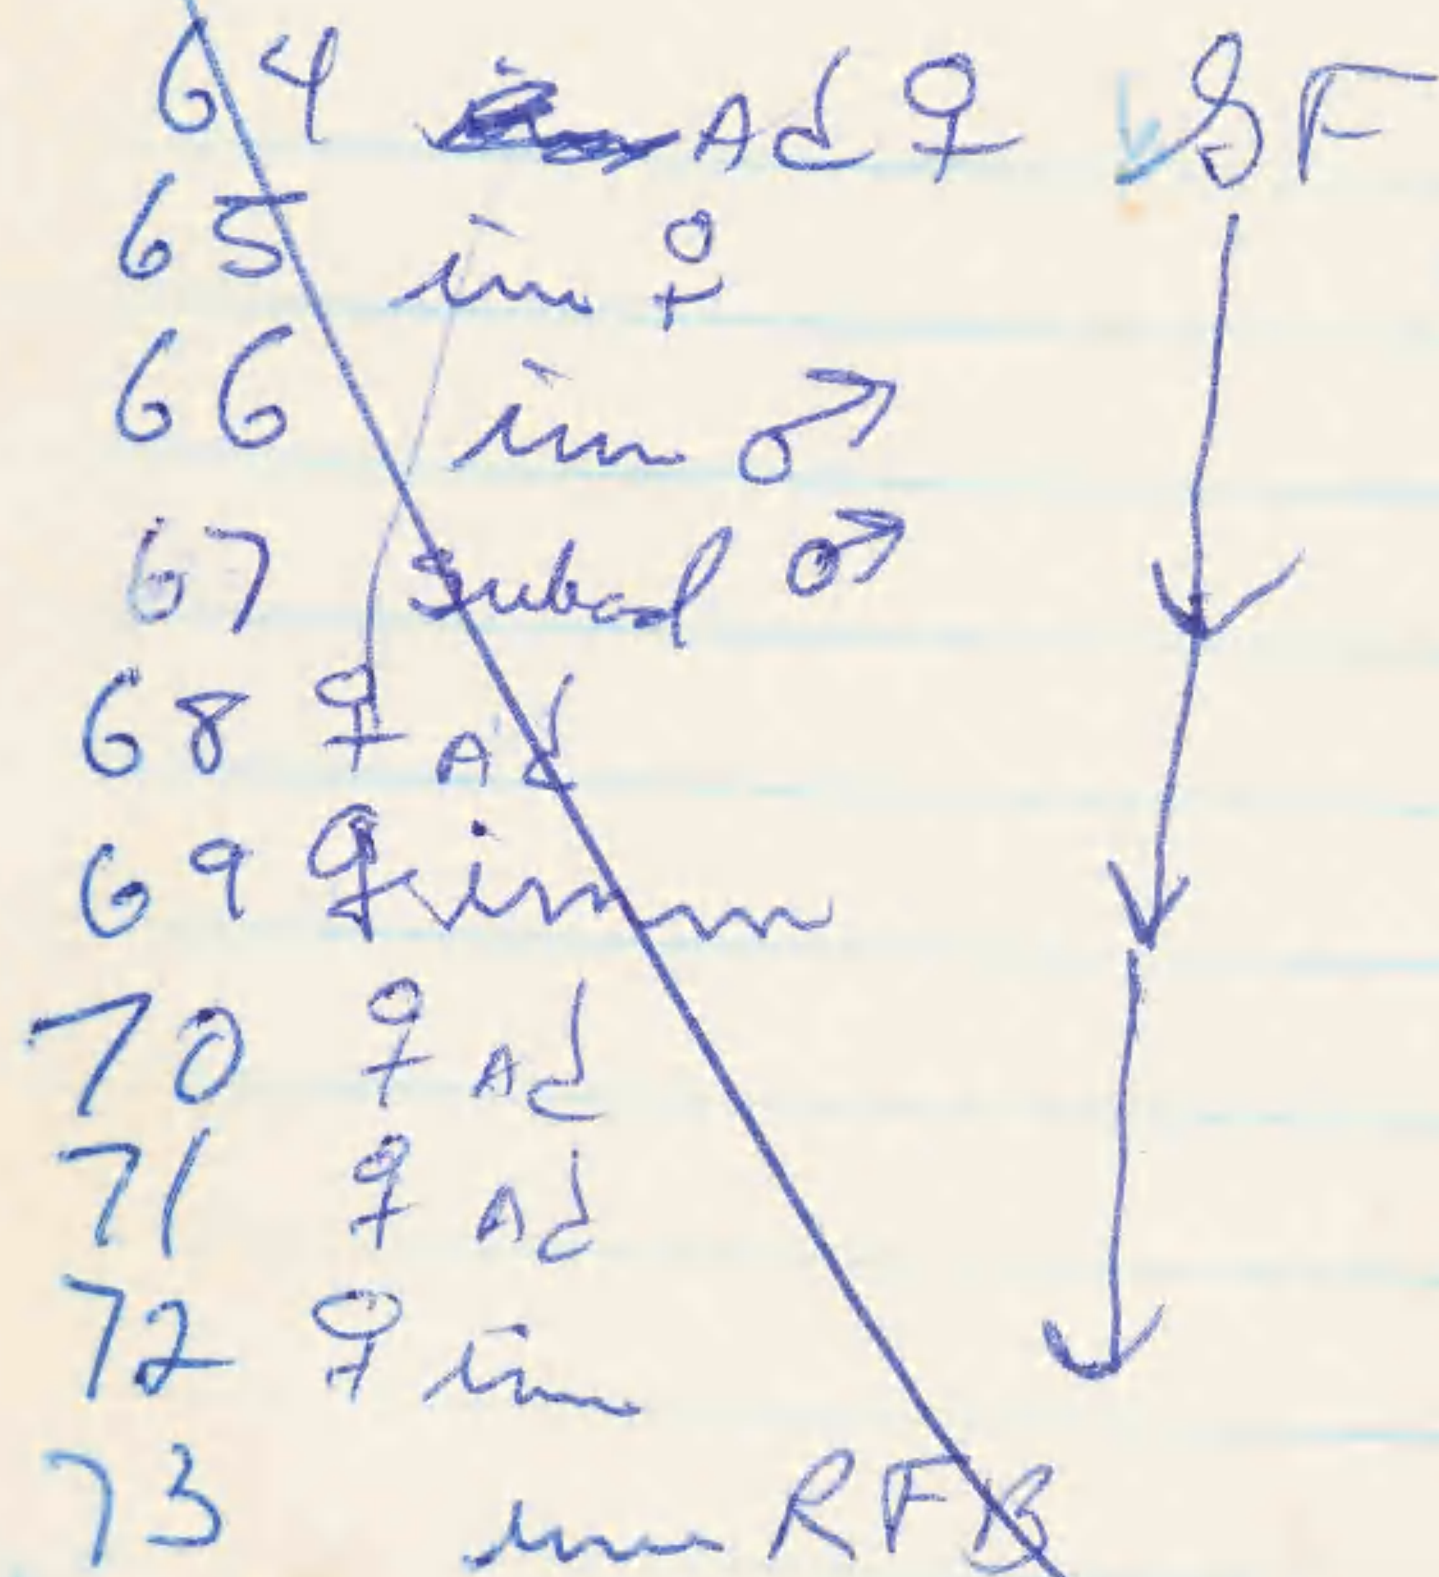 64 Ad ♀ SF
65 im ♀
66 im ♂
67 Subad ♂
68 ♀ Ad
69 ♀ imm
70 ♀ Ad
71 ♀ Ad
72 ♀ im
73 imm RFB